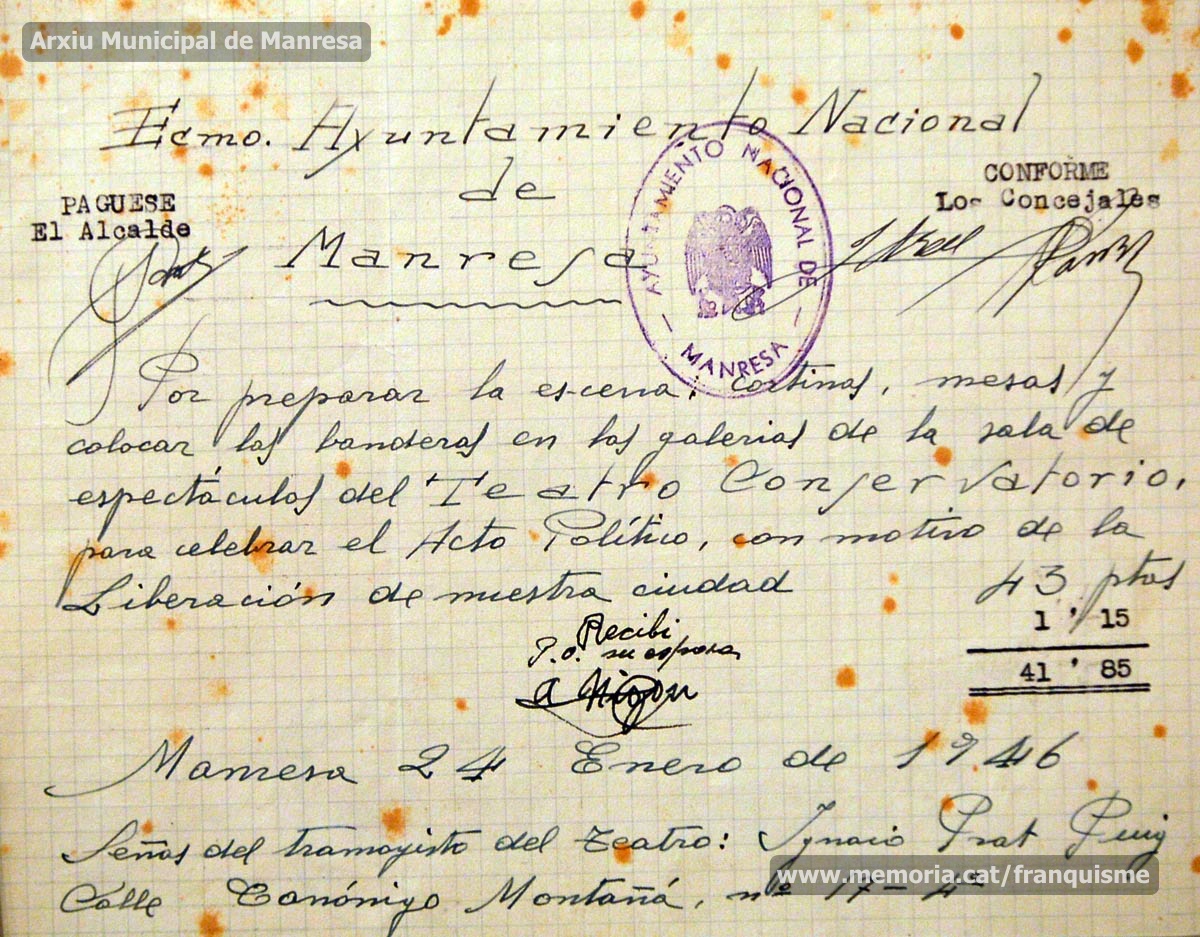 Arxiu Municipal de Manresa
Ecmo. Ayuntamiento Nacional
de
Manresa
PAGUESE
El Alcalde
CONFORME
Los Concejales
AYUNTAMIENTO NACIONAL DE
— MANRESA —
Por preparar la escena; cortinas, mesas y
colocar las banderas en las galerias de la sala de
espectáculos del Teatro Conservatorio,
para celebrar el Acto Político, con motivo de la
Liberación de nuestra ciudad 43 ptas
1 ' 15
41 ' 85
Recibi
P.O. su esposa
Manresa 24 Enero de 1946
Señas del tramoyista del teatro: Ignacio Prat Puig
Calle Canónigo Montañá, nº 17 - 4º
www.memoria.cat/franquisme